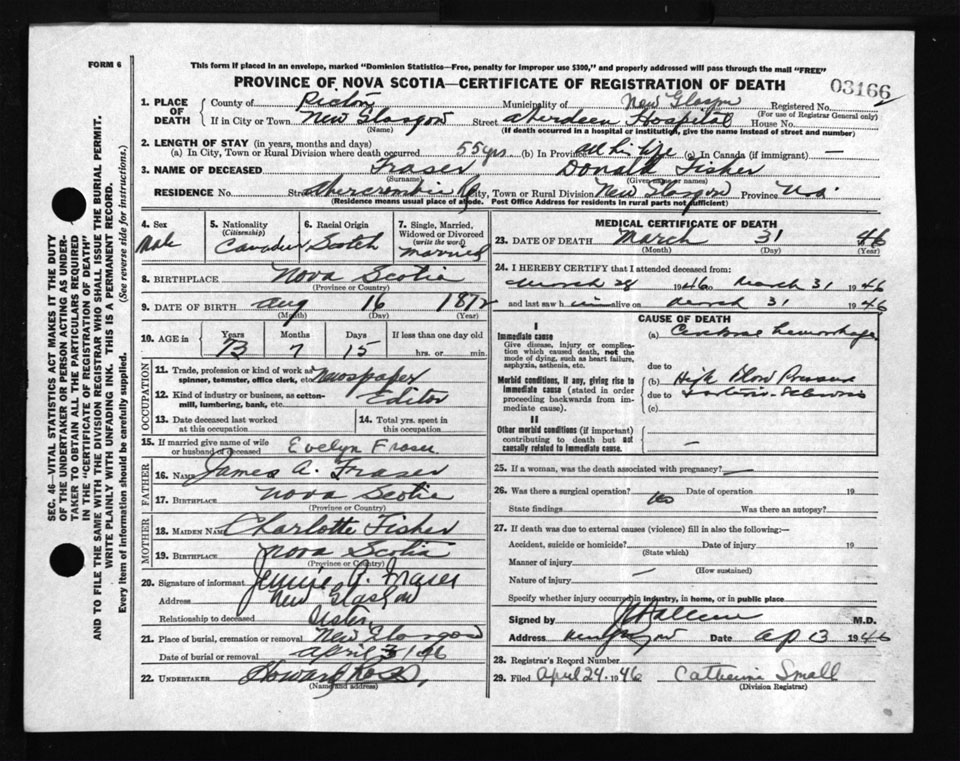 FORM 6
This form if placed in an envelope, marked "Dominion Statistics—Free, penalty for improper use $300," and properly addressed will pass through the mail "FREE"
PROVINCE OF NOVA SCOTIA—CERTIFICATE OF REGISTRATION OF DEATH
03166
1. PLACE OF DEATH
County of Pictou Municipality of New Glasgow Registered No.
(For use of Registrar General only)
If in City or Town New Glasgow Street Aberdeen Hospital House No.
(Name) (If death occurred in a hospital or institution, give the name instead of street and number)
2. LENGTH OF STAY (in years, months and days)
(a) In City, Town or Rural Division where death occurred 55 yrs. (b) In Province all his life (c) In Canada (if immigrant) —
3. NAME OF DECEASED Fraser Donald Fisher
(Surname) (Given name or names)
RESIDENCE No. Street Abercrombie City, Town or Rural Division New Glasgow Province N.S.
(Residence means usual place of abode. Post Office Address for residents in rural parts not sufficient)
4. Sex Male
5. Nationality (Citizenship) Canadian
6. Racial Origin Scotch
7. Single, Married, Widowed or Divorced (write the word) Married
8. BIRTHPLACE Nova Scotia
(Province or Country)
9. DATE OF BIRTH Aug 16 1872
(Month) (Day) (Year)
10. AGE in Years 73 Months 7 Days 15 If less than one day old hrs. or min.
OCCUPATION
11. Trade, profession or kind of work as spinner, teamster, office clerk, etc. Newspaper
12. Kind of industry or business, as cotton-mill, lumbering, bank, etc. Editor
13. Date deceased last worked at this occupation
14. Total yrs. spent in this occupation
15. If married give name of wife or husband of deceased Evelyn Fraser
FATHER
16. NAME James A. Fraser
17. BIRTHPLACE Nova Scotia
(Province or Country)
MOTHER
18. MAIDEN NAME Charlotte Fisher
19. BIRTHPLACE Nova Scotia
(Province or Country)
20. Signature of informant Jennie Fraser
Address New Glasgow
Relationship to deceased Sister
21. Place of burial, cremation or removal New Glasgow
Date of burial or removal April 3/46
22. UNDERTAKER Howard Ross
(Name and address)
MEDICAL CERTIFICATE OF DEATH
23. DATE OF DEATH March 31 46
(Month) (Day) (Year)
24. I HEREBY CERTIFY that I attended deceased from:
March 28 1946 to March 31 1946
and last saw him alive on March 31 1946
CAUSE OF DEATH
I
Immediate cause
Give disease, injury or complication which caused death, not the mode of dying, such as heart failure, asphyxia, asthenia, etc.
(a) Cerebral hemorrhage
due to
Morbid conditions, if any, giving rise to immediate cause (stated in order proceeding backwards from immediate cause).
(b) High Blood Pressure
due to
(c)
II
Other morbid conditions (if important) contributing to death but not causally related to immediate cause.
—
25. If a woman, was the death associated with pregnancy? —
26. Was there a surgical operation? no Date of operation 19
State findings Was there an autopsy?
27. If death was due to external causes (violence) fill in also the following:—
Accident, suicide or homicide? Date of injury 19
(State which)
Manner of injury
(How sustained)
Nature of injury —
Specify whether injury occurred in industry, in home, or in public place
Signed by M.D.
Address New Glasgow Date Ap 13 1946
28. Registrar's Record Number
29. Filed April 24, 1946 Catherine Small
(Division Registrar)
SEC. 46—VITAL STATISTICS ACT MAKES IT THE DUTY
OF THE UNDERTAKER OR PERSON ACTING AS UNDERTAKER TO OBTAIN ALL THE PARTICULARS REQUIRED
IN THE "CERTIFICATE OF REGISTRATION OF DEATH"
AND TO FILE THE SAME WITH THE DIVISION REGISTRAR WHO SHALL ISSUE THE BURIAL PERMIT.
WRITE PLAINLY WITH UNFADING INK. THIS IS A PERMANENT RECORD.
Every item of information should be carefully supplied. (See reverse side for instructions.)